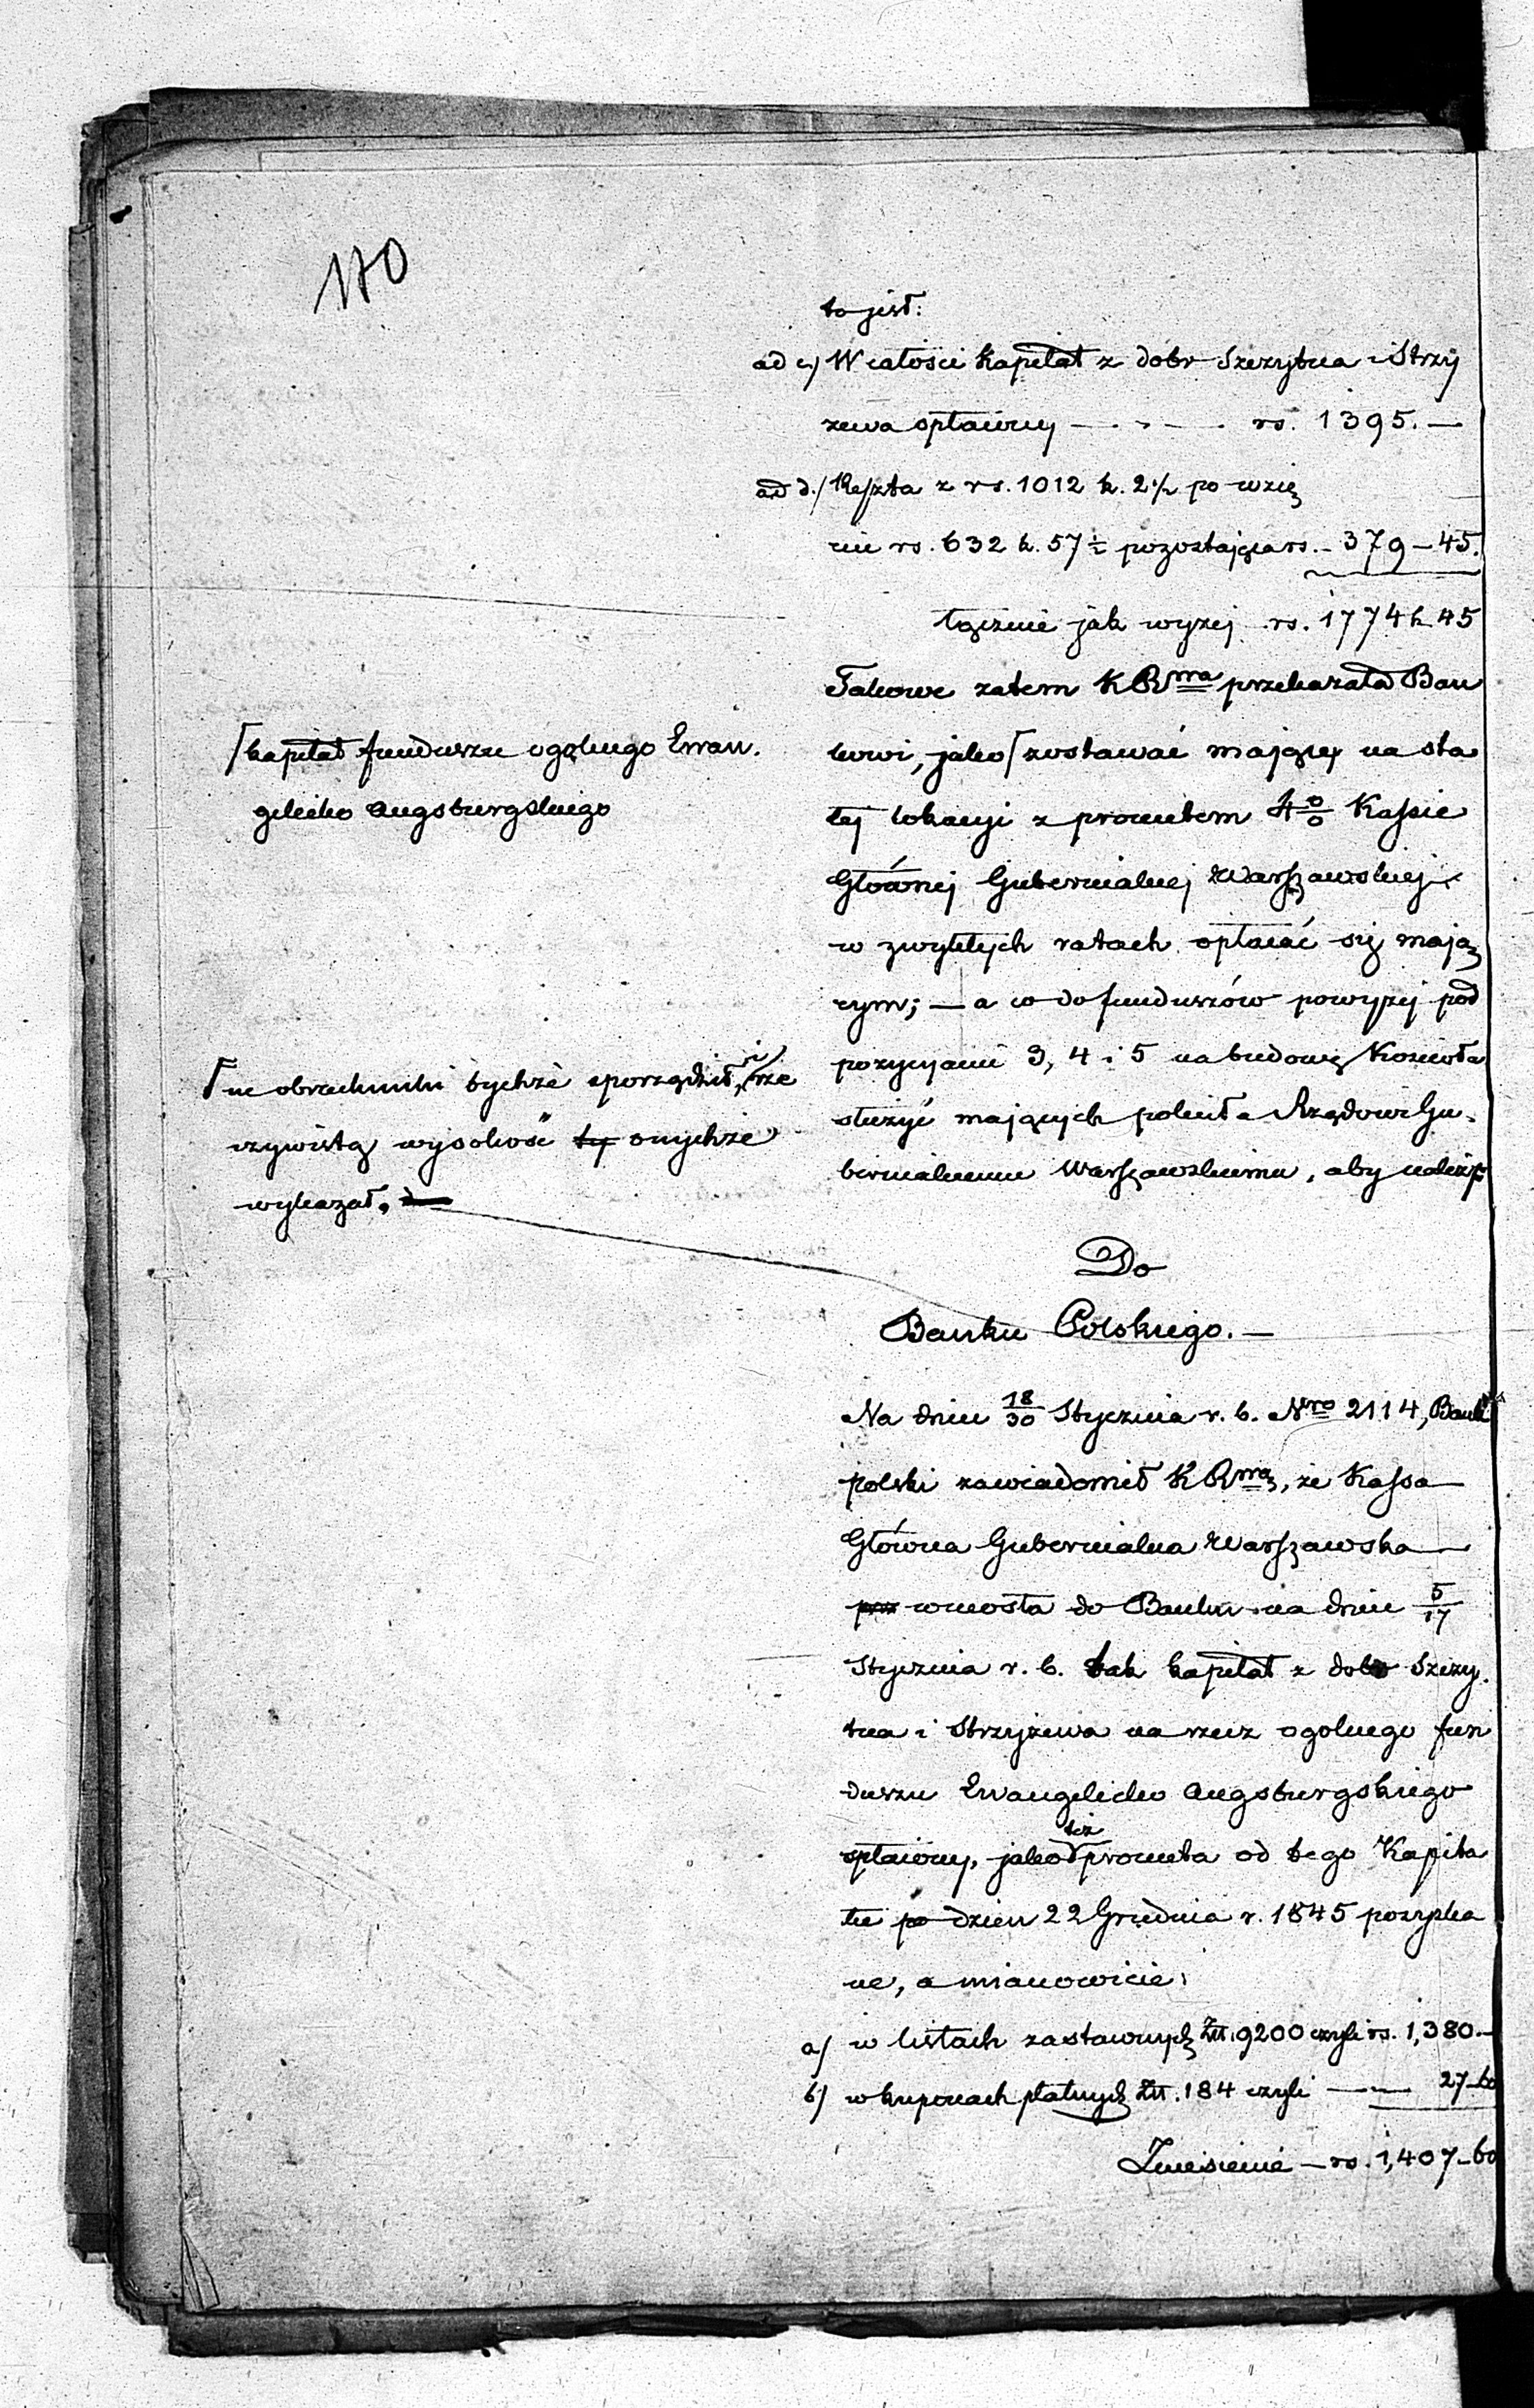 170
to jest:
ad c.) W całości kapitał z dobr Szczytna i Strzy
żewa spłacony — . — . rs. 1395. —
ad d./ Reszta z rs. 1012 k. 2½ po wzię
ciu rs. 632 k. 57½ pozostająca rs. — 379 — 45.
łącznie jak wyżej rs. 1774 k 45
Takowe zatem KRma przekazała Ban
kowi, jako ⌈zostawać mający na sta
⌈kapitał funduszu ogólnego Ewan.
gelicko Augsburgskiego
łej lokacyi z procentem 4 0/0 Kassie
Głównej Gubernialnej Warszawskiej
w zwykłych ratach opłacać się mają
cym; — a co do funduszów powyżej pod
pozycyami 3, 4 i 5 na budowę Kościoła
służyć mających poleciła Rządowi Gu.
bernialnemu Warszawskiemu, aby należy
obrachunki tychże sporządził, i rze
czywistą wysokość ty onychże
wykazał.
Do
Banku Polskiego. —
Na dniu 18/30 Stycznia r. b. Nro 2114, Bank
polski zawiadomił KRmą, że Kassa
Główna Gubernialna Warszawska
prz wniosła do Banku na dniu 5/17
Stycznia r. b. tak kapitał z dobr Szczy.
tna i Strzyżewa na rzecz ogolnego fun
duszu Ewangelicko Augsburgskiego
spłacony, jako też procenta od tego Kapita
łu po dzien 22 Grudnia r. 1845 pozyska
ne, a mianowicie:
a) w listach zastawnych Złł. 9200 czyli rs. 1,380. —
b) w kuponach płatnych Złł. 184 czyli — — 27 — 60
Zniesienie — rs. 1,407 — 60